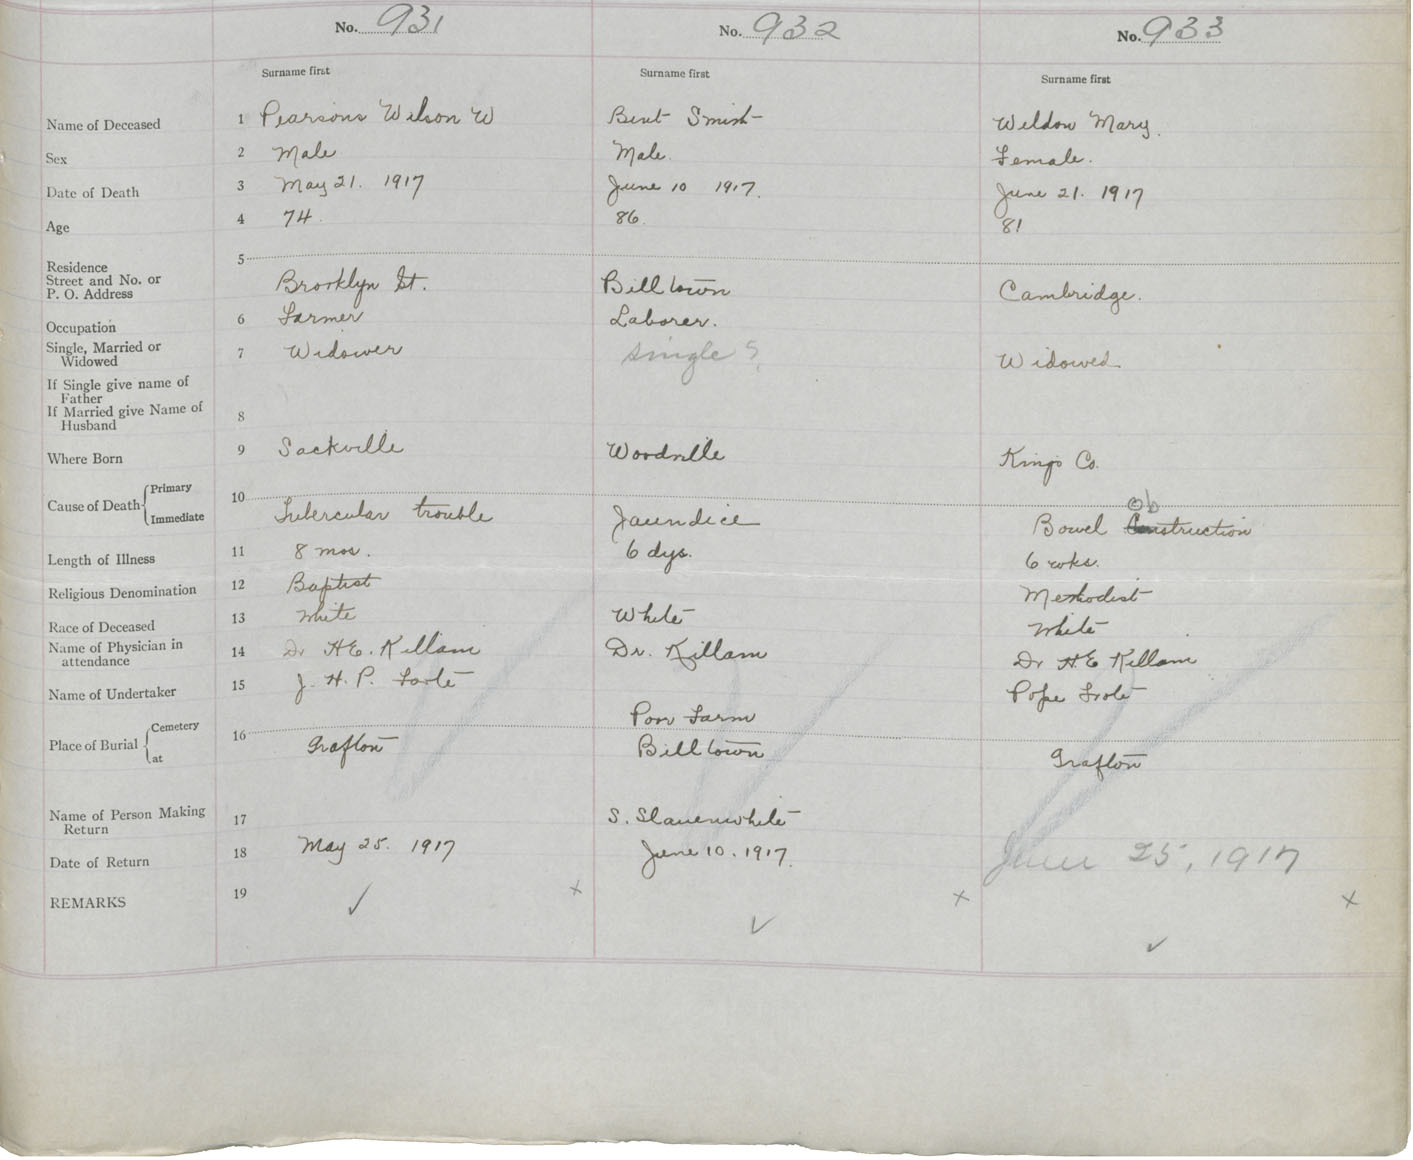 No. 931 No. 932 No. 933
Surname first Surname first Surname first
Name of Deceased 1 Pearsons Wilson W Bent Smith Weldon Mary.
Sex 2 Male Male. Female.
Date of Death 3 May 21. 1917 June 10 1917. June 21. 1917
Age 4 74. 86. 81
5
Residence
Street and No. or
P. O. Address Brooklyn St. Billtown Cambridge.
Occupation 6 Farmer Laborer.
Single, Married or
Widowed 7 Widower Single ? Widowed
If Single give name of
Father
If Married give Name of
Husband 8
Where Born 9 Sackville Woodville Kings Co.
Cause of Death Primary 10
Immediate Tubercular trouble Jaundice Bowel Obstruction
Length of Illness 11 8 mos. 6 dys. 6 wks.
Religious Denomination 12 Baptist Methodist
Race of Deceased 13 White White White
Name of Physician in
attendance 14 Dr H.E. Killam Dr. Killam Dr H.E Killam
Name of Undertaker 15 J. H. P. Foote Pope Foote
Place of Burial Cemetery 16 Poor Farm
at Grafton Billtown Grafton
Name of Person Making
Return 17 S. Slauenwhite
Date of Return 18 May 25. 1917 June 10. 1917. June 25, 1917
REMARKS 19